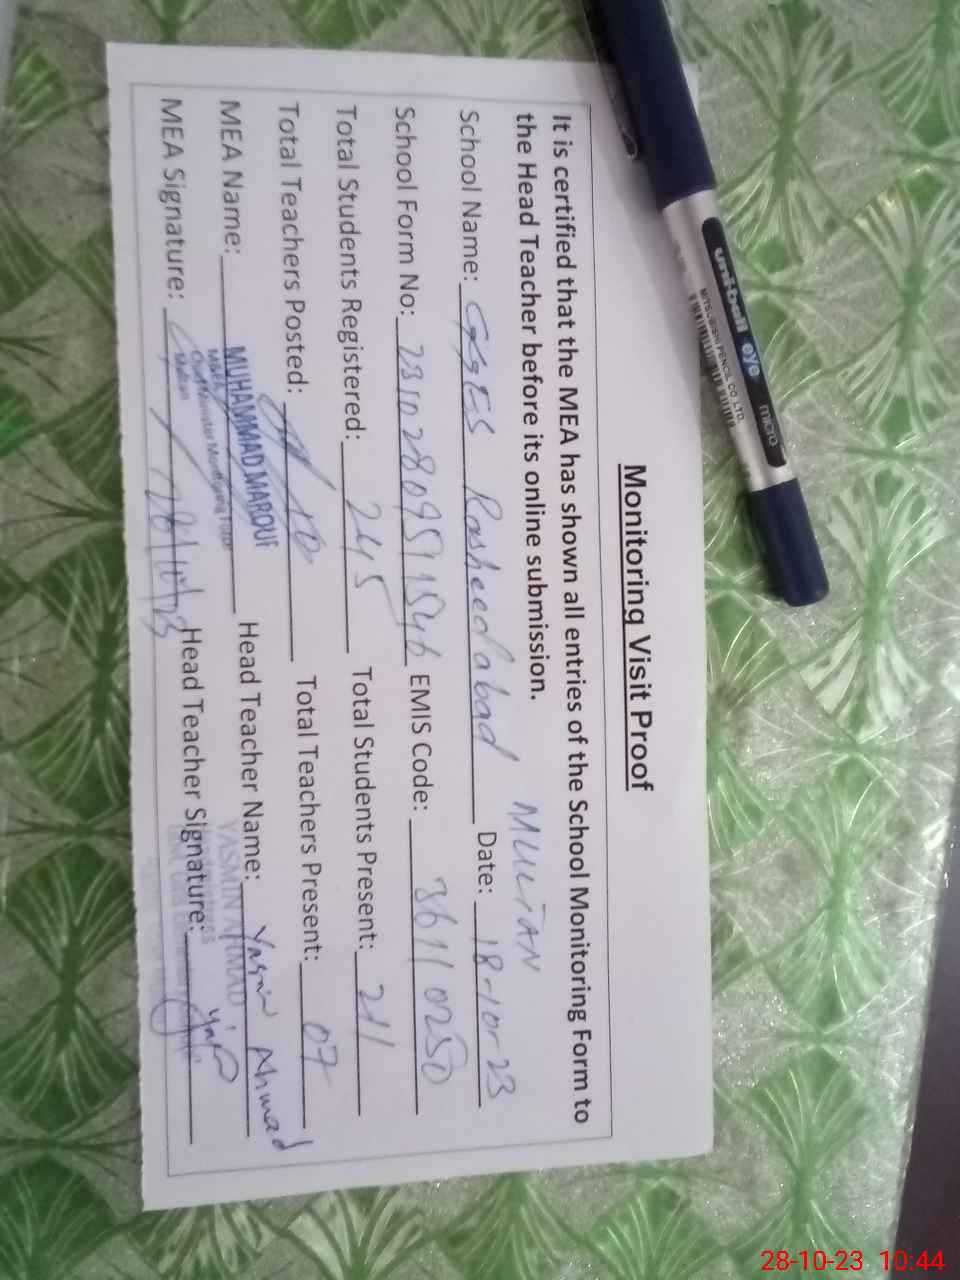 Monitoring Visit Proof
It is certified that the MEA has shown all entries of the School Monitoring Form to
the Head Teacher before its online submission.
MULTAN
School Name: GGES Rasheedabad Date: 18-10-23
School Form No: 2310280951546 EMIS Code: 36110250
Total Students Registered: 245 Total Students Present: 211
Total Teachers Posted: 10 Total Teachers Present: 07
MEA Name: MUHAMMAD MAROUF Head Teacher Name: Yasmin Ahmad
YASMIN AHMAD
MEA Signature: 28/10/23 Head Teacher Signature:
Multan
uni-ball eye micro
MITSUBISHI PENCIL CO. LTD.
28-10-23 10:44